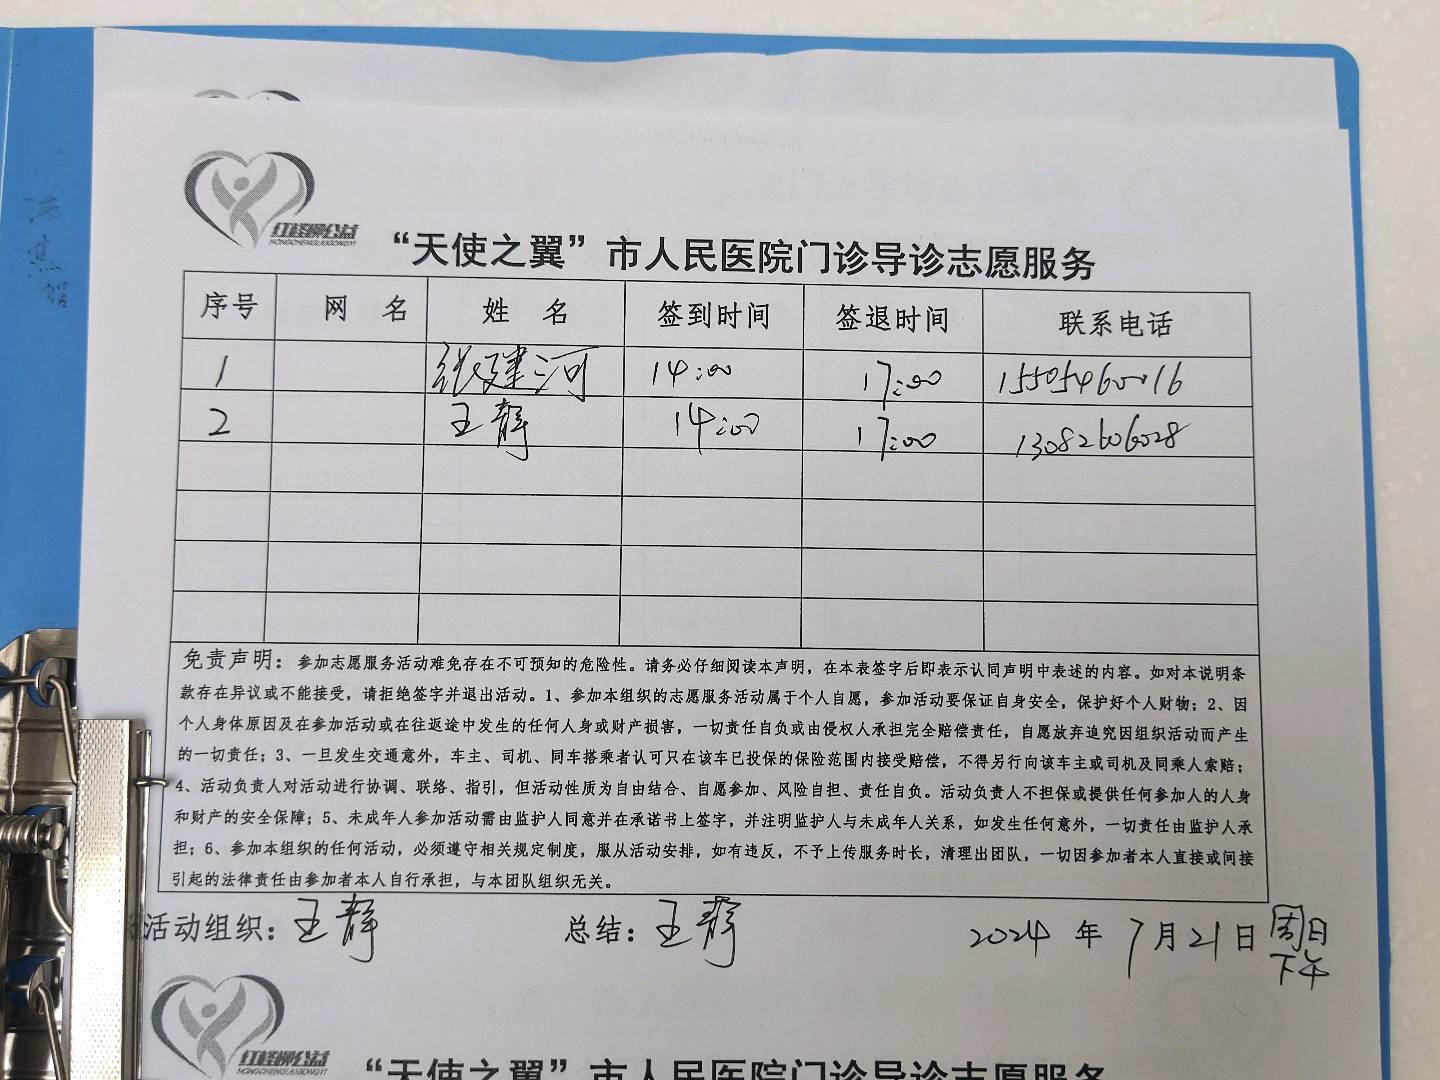 红柽柳公益
HONGCHENGLIUGONGYI
“天使之翼”市人民医院门诊导诊志愿服务
序号 网 名 姓 名 签到时间 签退时间 联系电话
1 张建河 14:00 17:00 15505460016
2 王静 14:00 17:00 13082606028
免责声明：参加志愿服务活动难免存在不可预知的危险性。请务必仔细阅读本声明，在本表签字后即表示认同声明中表述的内容。如对本说明条
款存在异议或不能接受，请拒绝签字并退出活动。1、参加本组织的志愿服务活动属于个人自愿，参加活动要保证自身安全，保护好个人财物；2、因
个人身体原因及在参加活动或在往返途中发生的任何人身或财产损害，一切责任自负或由侵权人承担完全赔偿责任，自愿放弃追究因组织活动而产生
的一切责任；3、一旦发生交通意外，车主、司机、同车搭乘者认可只在该车已投保的保险范围内接受赔偿，不得另行向该车主或司机及同乘人索赔；
4、活动负责人对活动进行协调、联络、指引，但活动性质为自由结合、自愿参加、风险自担、责任自负。活动负责人不担保或提供任何参加人的人身
和财产的安全保障；5、未成年人参加活动需由监护人同意并在承诺书上签字，并注明监护人与未成年人关系，如发生任何意外，一切责任由监护人承
担；6、参加本组织的任何活动，必须遵守相关规定制度，服从活动安排，如有违反，不予上传服务时长，清理出团队，一切因参加者本人直接或间接
引起的法律责任由参加者本人自行承担，与本团队组织无关。
活动组织：王静 总结：王静 2024 年 7月21日 周日
下午
红柽柳公益
HONGCHENGLIUGONGYI
“天使之翼”市人民医院门诊导诊志愿服务